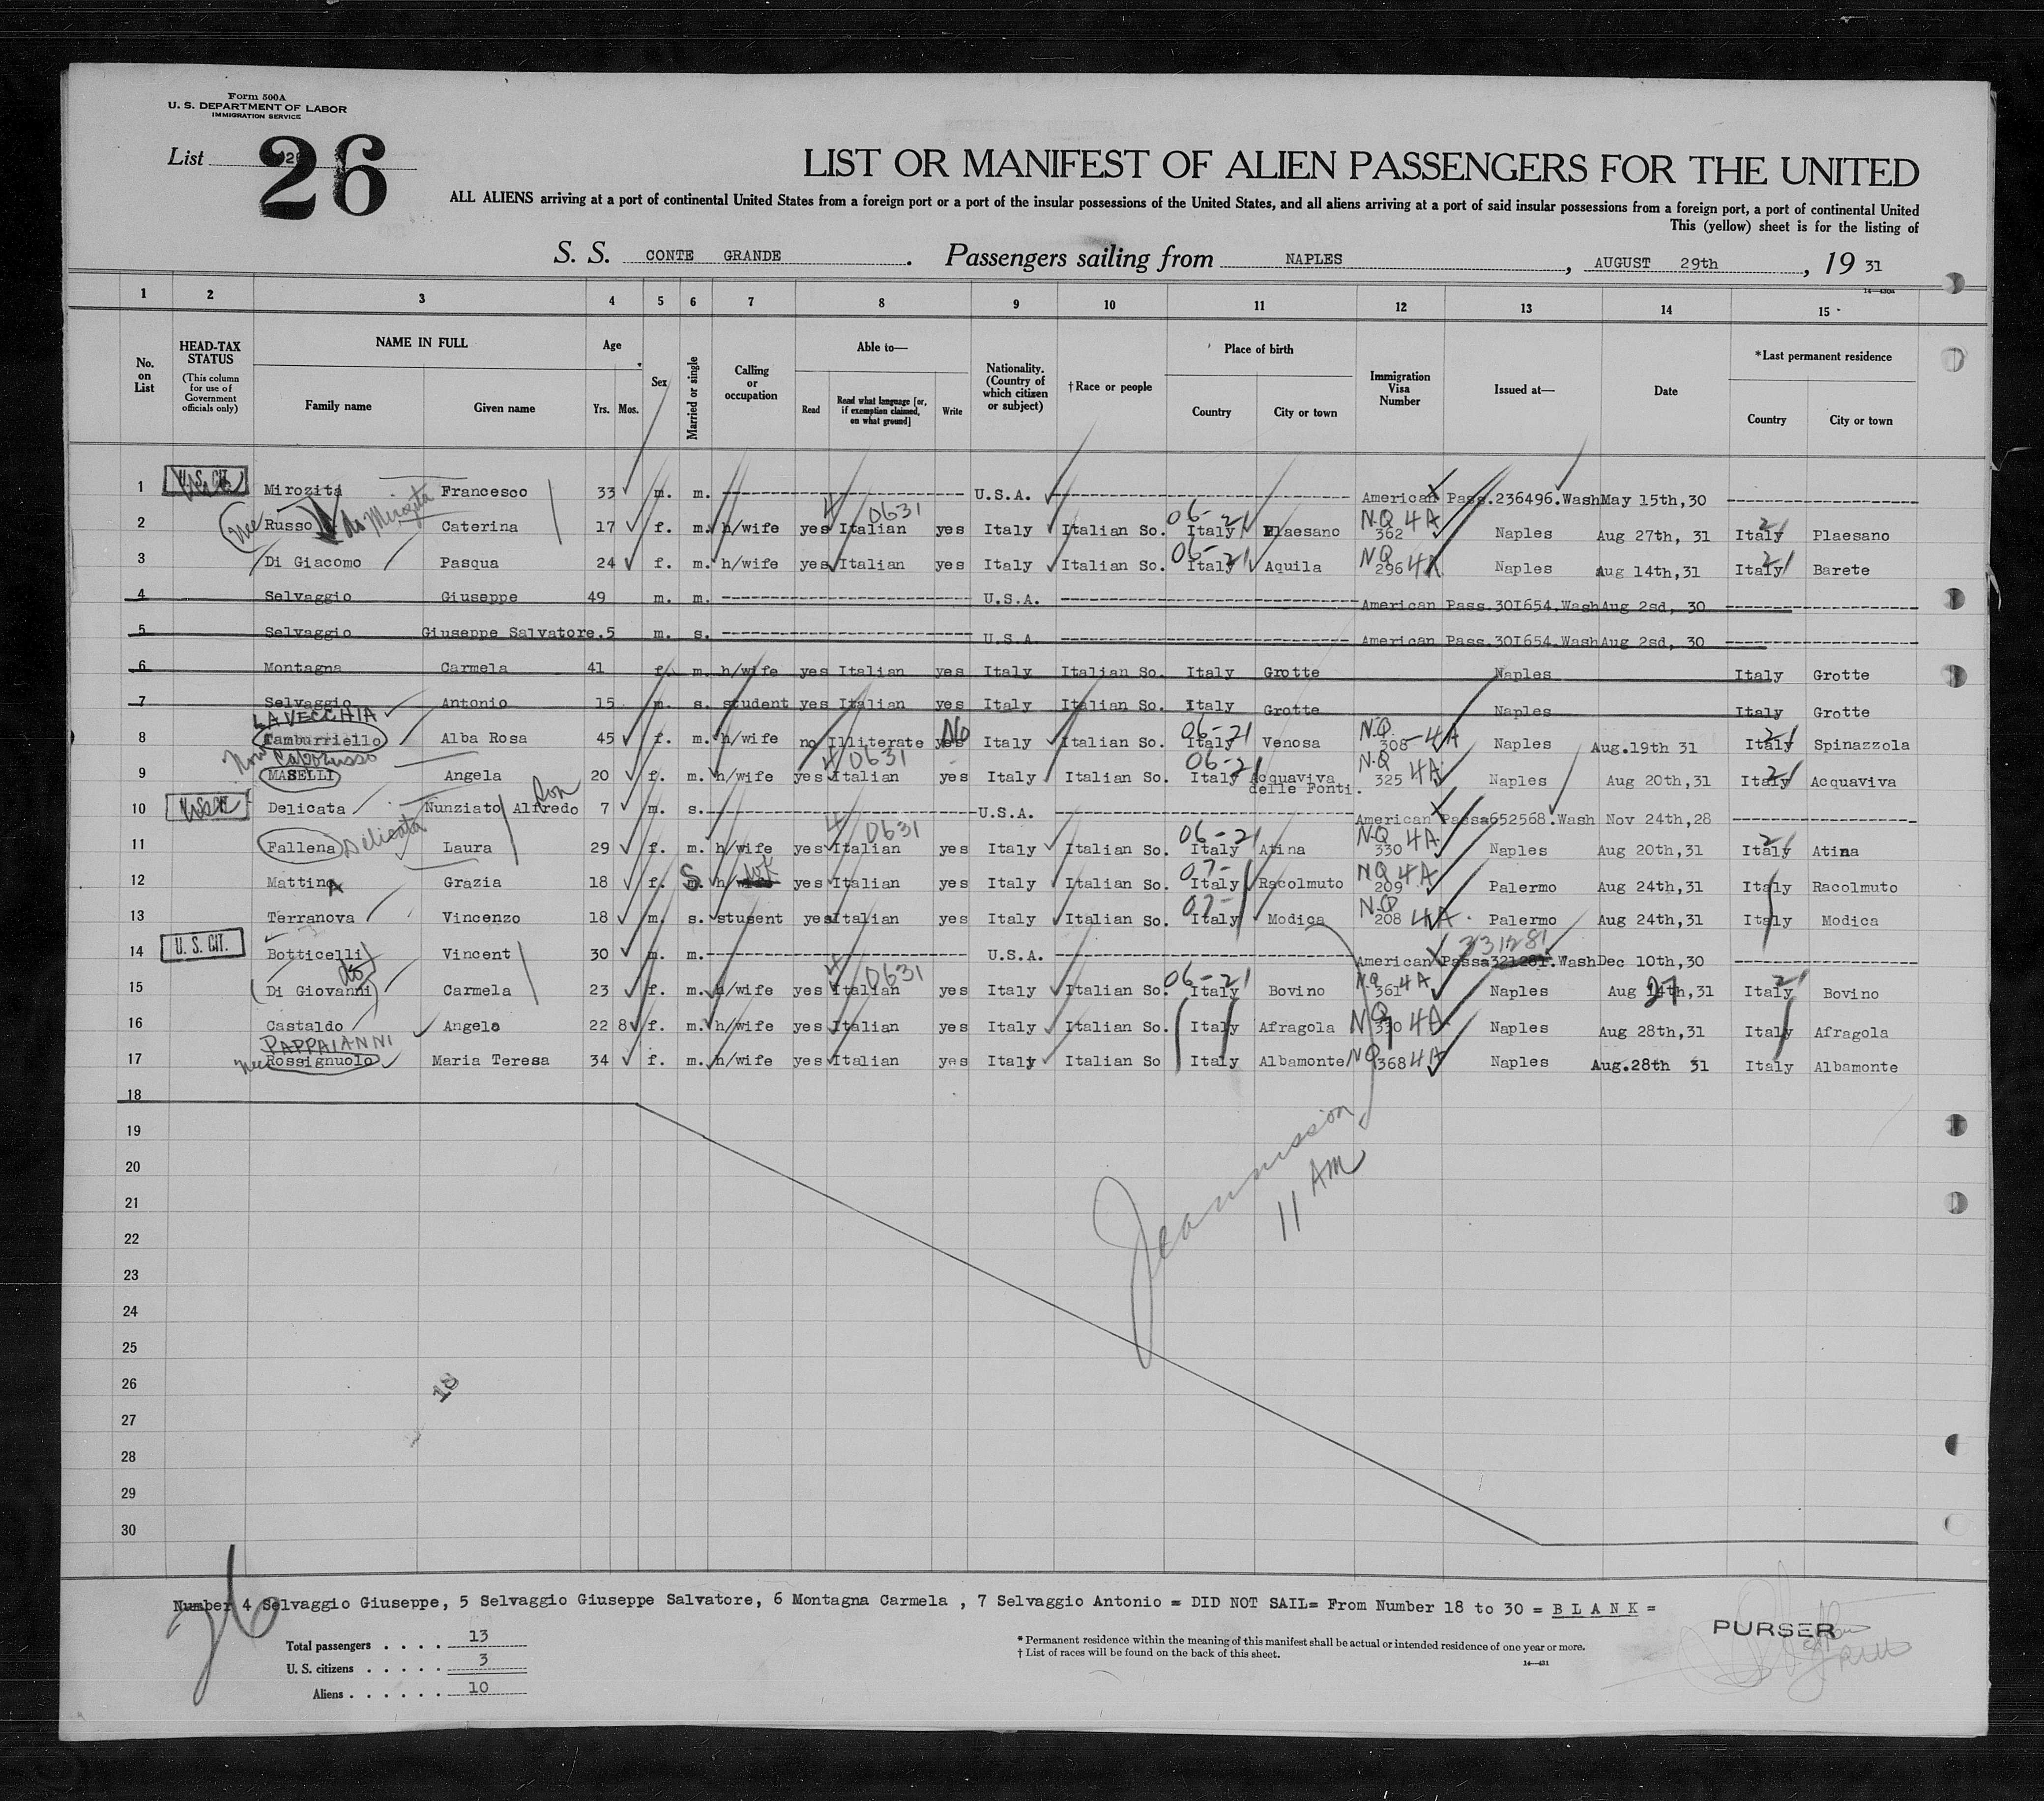 Form 500A
U. S. DEPARTMENT OF LABOR
IMMIGRATION SERVICE
List 26
LIST OR MANIFEST OF ALIEN PASSENGERS FOR THE UNITED
ALL ALIENS arriving at a port of continental United States from a foreign port or a port of the insular possessions of the United States, and all aliens arriving at a port of said insular possessions from a foreign port, a port of continental United
This (yellow) sheet is for the listing of
S. S. CONTE GRANDE. Passengers sailing from NAPLES, AUGUST 29th, 19 31
14—430a
1 2 3 4 5 6 7 8 9 10 11 12 13 14 15
No. on List
HEAD-TAX STATUS (This column for use of Government officials only)
NAME IN FULL
Family name Given name
Age
Yrs. Mos.
Sex
Married or single
Calling or occupation
Able to—
Read
Read what language [or, if exemption claimed, on what ground]
Write
Nationality. (Country of which citizen or subject)
†Race or people
Place of birth
Country City or town
Immigration Visa Number
Issued at—
Date
*Last permanent residence
Country City or town
1 U. S. CIT. Mirozita Francesco 33 m. m. U.S.A. American Pass.236496.Wash May 15th,30
2 (nee Russo) Mirozita Caterina 17 f. m. h/wife yes Italian 4 0631 yes Italy Italian So. 06-21 Italy Plaesano NQ 4A 362 Naples Aug 27th, 31 Italy 21 Plaesano
3 Di Giacomo Pasqua 24 f. m. h/wife yes Italian yes Italy Italian So. 06-21 Italy Aquila NQ 296 4A Naples Aug 14th,31 Italy 21 Barete
4 Selvaggio Giuseppe 49 m. m. U.S.A. American Pass.301654.Wash Aug 2sd, 30
5 Selvaggio Giuseppe Salvatore.5 m. s. U.S.A. American Pass.301654.Wash Aug 2sd, 30
6 Montagna Carmela 41 f. m. h/wife yes Italian yes Italy Italian So. Italy Grotte Naples Italy Grotte
7 Selvaggio Antonio 15 m. s. student yes Italian yes Italy Italian So. Italy Grotte Naples Italy Grotte
LAVECCHIA
8 Tamburriello Alba Rosa 45 f. m. h/wife no Illiterate yes No Italy Italian So. 06-21 Italy Venosa NQ 308-4A Naples Aug.19th 31 Italy 21 Spinazzola
9 MASELLI Angela 20 f. m. h/wife yes Italian 4 0631 yes Italy Italian So. 06-21 Italy Acquaviva delle Fonti. NQ 325 4A Naples Aug 20th,31 Italy 21 Acquaviva
10 Delicata Nunziato Alfredo son 7 m. s. U.S.A. American Passa652568.Wash Nov 24th,28
11 Fallena Delicata Laura 29 f. m. h/wife yes Italian 4 0631 yes Italy Italian So. 06-21 Italy Atina NQ 4A 330 Naples Aug 20th,31 Italy 21 Atina
12 Mattina Grazia 18 f. S h/ yes Italian yes Italy Italian So. 07- Italy Racolmuto NQ 4A 209 Palermo Aug 24th,31 Italy Racolmuto
13 Terranova Vincenzo 18 m. s. stusent yes Italian yes Italy Italian So. 07- Italy Modica NQ 208 4A. Palermo Aug 24th,31 Italy Modica
14 U. S. CIT. Botticelli Vincent 30 m. m. U.S.A. American Passa321281.Wash 331281 Dec 10th,30
15 (Di Giovanni) do Carmela 23 f. m. h/wife yes Italian 4 0631 yes Italy Italian So. 06-21 Italy Bovino NQ 361 4A Naples Aug 14th,31 27 Italy 21 Bovino
16 Castaldo Angela 22 8 f. m. h/wife yes Italian yes Italy Italian So. Italy Afragola NQ 370 4A Naples Aug 28th,31 Italy Afragola
PAPPAIANNI
17 nee Rossignuolo Maria Teresa 34 f. m. h/wife yes Italian yes Italy Italian So Italy Albamonte NQ 368 4A Naples Aug.28th 31 Italy Albamonte
18
19
20
21
22
23
24
25
26
27
28
29
30
11 AM
18
26
Number 4 Selvaggio Giuseppe, 5 Selvaggio Giuseppe Salvatore, 6 Montagna Carmela , 7 Selvaggio Antonio = DID NOT SAIL= From Number 18 to 30 = B L A N K =
Total passengers . . . . 13
U. S. citizens . . . . . 3
Aliens . . . . . . 10
* Permanent residence within the meaning of this manifest shall be actual or intended residence of one year or more.
† List of races will be found on the back of this sheet.
14—431
PURSER